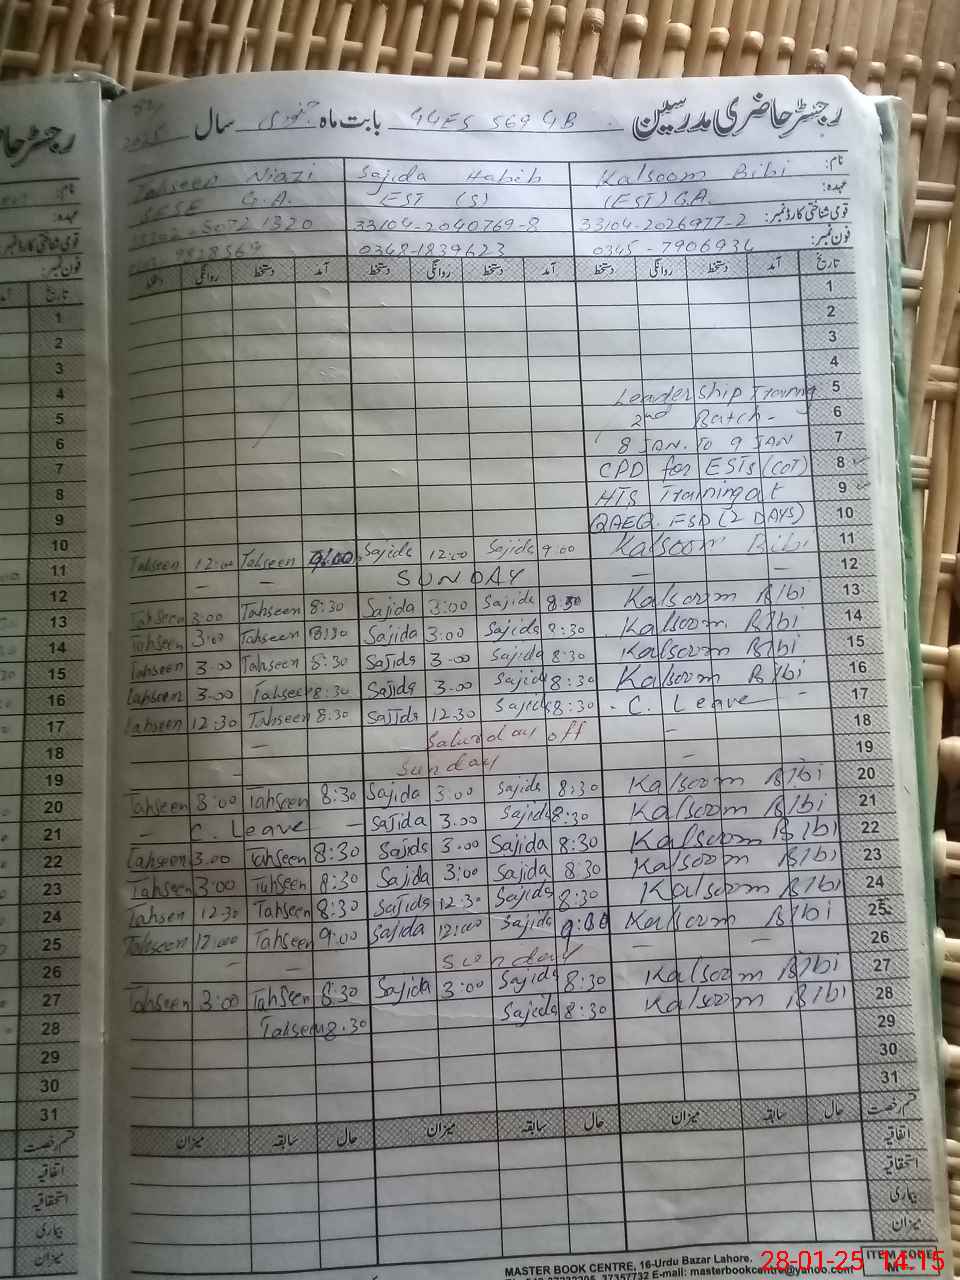 رجسٹر حاضری مدرسین GGES 569 GB بابت ماہ جنوری سال 2025
نام: Kalsoom Bibi Sajida Habib Tahseen Niazi
عہدہ: (EST) G.A. EST (S) SESE G.A.
قومی شناختی کارڈ نمبر: 33104-2026977-2 33104-2040769-8
فون نمبر: 0345-7906934 0348-1839623
تاریخ آمد دستخط روانگی دستخط آمد دستخط روانگی دستخط آمد دستخط روانگی دستخط
1
2
3
4
5 Leadership Training
6 2nd Batch-
7 8 JAN. To 9 JAN
8 CPD for ESTs (COT)
9 HTS Training at
10 QAEQ. FSD (2 DAYS)
11 Kalsoom Bibi 9:00 Sajida 12:00 Sajida 9:00 Tahseen 12:00 Tahseen
12 - - SUNDAY - -
13 Kalsoom Bibi 8:30 Sajida 3:00 Sajida 8:30 Tahseen 3:00 Tahseen
14 Kalsoom Bibi 8:30 Sajida 3:00 Sajida 8:30 Tahseen 3:00 Tahseen
15 Kalsoom Bibi 8:30 Sajida 3.00 Sajida 8:30 Tahseen 3.00 Tahseen
16 Kalsoom Bibi 8:30 Sajida 3.00 Sajida 8:30 Tahseen 3.00 Tahseen
17 - C. Leave - 8:30 Sajida 12.30 Sajida 8.30 Tahseen 12.30 Tahseen
18 - Saturday off -
19 - Sunday -
20 Kalsoom Bibi 8:30 Sajida 3:00 Sajida 8:30 Tahseen 3:00 Tahseen
21 Kalsoom Bibi 8:30 Sajida 3.00 Sajida - C. Leave -
22 Kalsoom Bibi 8:30 Sajida 3.00 Sajida 8:30 Tahseen 3.00 Tahseen
23 Kalsoom Bibi 8:30 Sajida 3:00 Sajida 8:30 Tahseen 3:00 Tahseen
24 Kalsoom Bibi 8:30 Sajida 12:30 Sajida 8:30 Tahseen 12.30 Tahsen
25 Kalsoom Bibi 9:00 Sajida 12:00 Sajida 9:00 Tahseen 12:00 Tahseen
26 - - Sunday - -
27 Kalsoom Bibi 8:30 Sajida 3:00 Sajida 8:30 Tahseen 3:00 Tahseen
28 Kalsoom Bibi 8:30 Sajida 8.30 Tahseen
29
30
31
قسم رخصت حال سابقہ میزان حال سابقہ میزان حال سابقہ میزان
اتفاقیہ
استحقاقیہ
بیماری
میزان
MASTER BOOK CENTRE, 16-Urdu Bazar Lahore.
37357732 E-mail: masterbookcentre@yahoo.com
ITEM CODE
28-01-25 14:15
رجسٹر
نام:
عہدہ:
قومی شناختی کا
فون نمبر:
تاریخ
1
2
3
4
5
6
7
8
9
10
11
12
13
14
15
16
17
18
19
20
21
22
23
24
25
26
27
28
29
30
31
قسم رخصت
اتفاقیہ
استحقاقیہ
بیماری
میزان